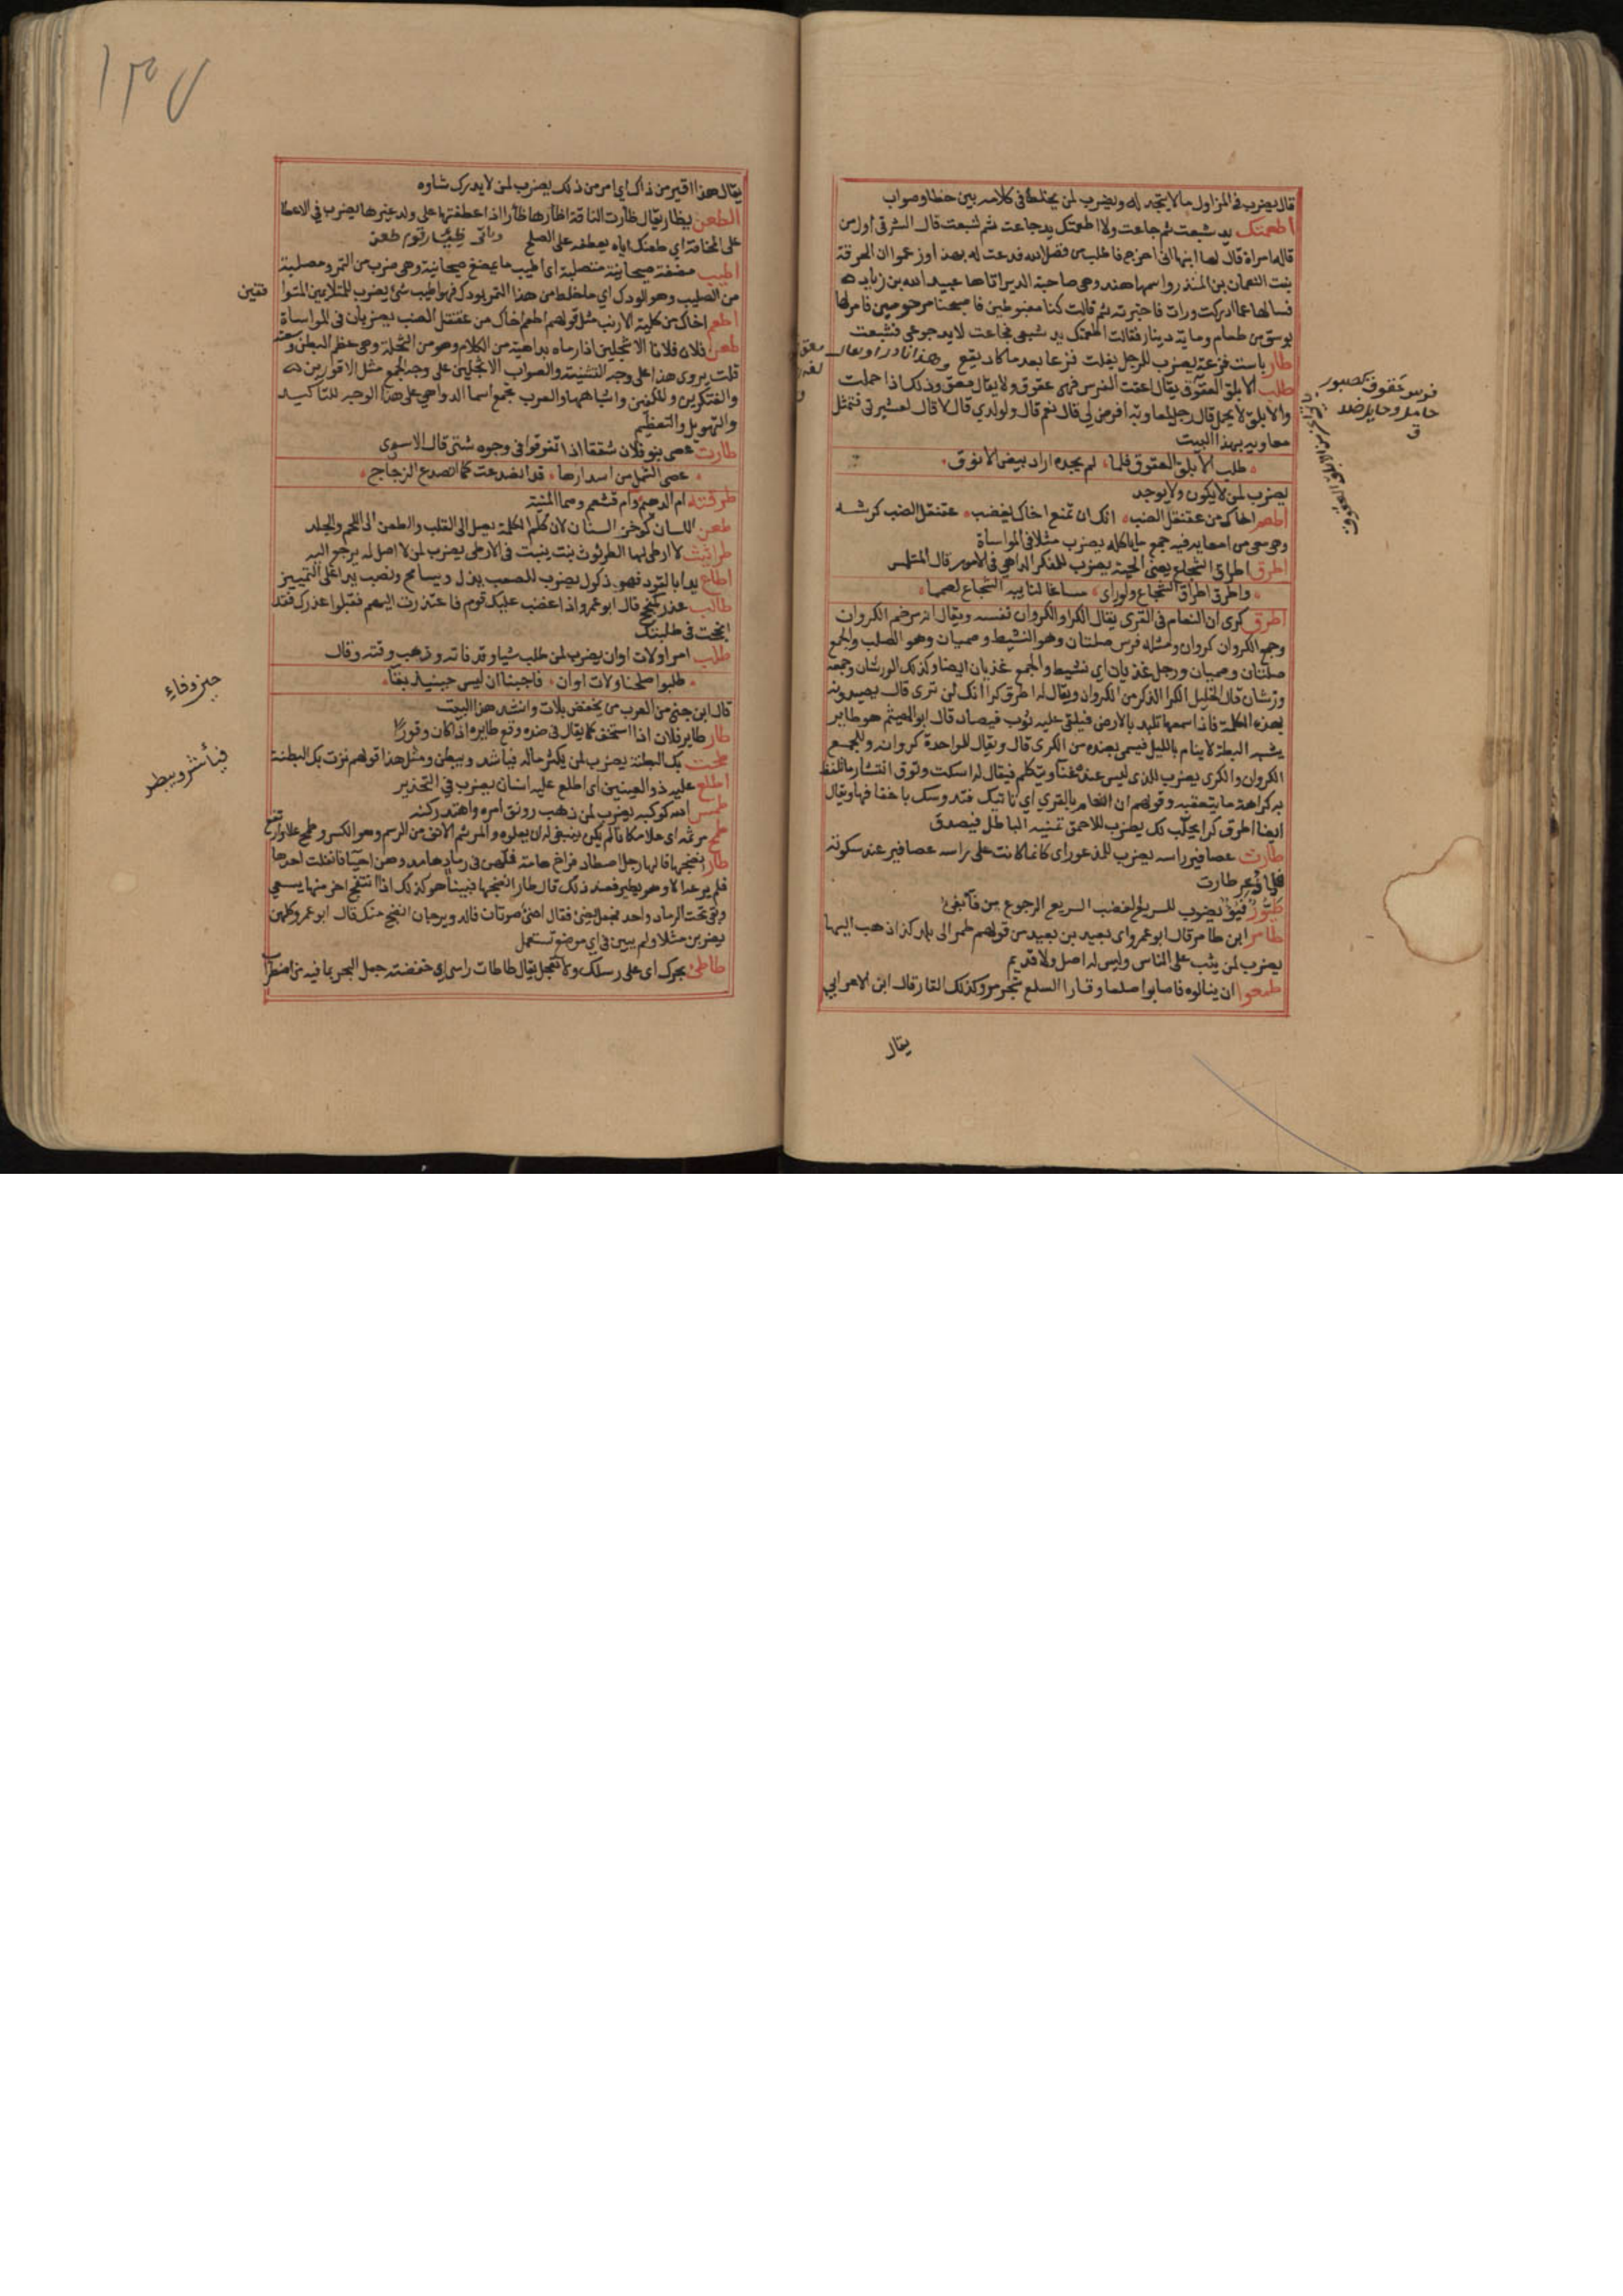 قال يضرب في المزاول ما لا يتجه له ويضرب لمن يخلط في كلامه بين خطا وصواب
اطعمتك يد شبعت ثم جاعت ولا اطعمتك يد جاعت ثم شبعت قال الشرقي اول من
قالها مراة قال لها ابنها اني اخرج فاطلب من فضل الله فدعت له بهذا وزعموا ان الحرقة
بنت النعمان بن المنذر واسمها هند وهي صاحبة الدير اتاها عبيد الله بن زياد
فسالها عما ادركت ورات فاخبرته ثم قالت كنا مغبوطين فاصبحنا مرحومين فامر لها
بوسق من طعام وماية دينار فقالت اطعمتك يد شبعى فجاعت لا يد جوعى فشبعت
طار باست فزعة يضرب للرجل يفلت فزعا بعد ما كاد يقع
طلب الابلق العقوق يقال اعقت الفرس فهي عقوق ولا يقال معق وذلك اذا حملت
والابلق لا يحمل قال رجل لمعاوية افرض لي قال نعم قال ولولدي قال لا قال لعشيرتي فتمثل
معاوية بهذا البيت
طلب الابلق العقوق فلما لم يجده اراد بيض الانوق
يضرب لمن لا يكون ولا يوجد
اطعم اخاك من عقنقل الضب انك ان تمنع اخاك يغضب عقنقل الضب كرشه
وهي من امعايه فيه جميع ما ياكله يضرب مثلا في المواساة
اطرق اطراق الشجاع يعني الحية يضرب للمفكر الداهي في الامور قال المتلمس
واطرق اطراق الشجاع ولو راى مساغا لنابيه الشجاع لصمما
اطرق كرى ان النعام في القرى يقال الكرا والكروان نفسه ويقال انه مرخم الكروان
وجمع الكروان كروان ومثله فرس صلتان وهو النشيط وصميان وهو الصلب والجمع
صلتان وصميان ورجل غذيان اي نشيط والجمع غذيان ايضا وكذلك الورشان وجمعه
ورشان قال الخليل الكرا الذكر من الكروان ويقال له اطرق كرا انك لن ترى قال يصيدونه
بهذه الكلمة فاذا سمعها تلبد بالارض فيلقى عليه ثوب فيصاد قال ابو الهيثم هو طاير
يشبه البطة لا ينام بالليل فيسمى بضده من الكرى قال ويقال للواحدة كروانه وللجميع
الكروان والكرى يضرب للذي ليس عنده غنا ويتكلم فيقال له اسكت وتوق انتشار ما تلفظ
به كراهة ما يتعقبه وقولهم ان النعام بالقرى اي تاتيك فتدوسك باخفافها ويقال
ايضا اطرق كرا يحلب لك يضرب للاحمق تمنيه الباطل فيصدق
طارت عصافير راسه يضرب للمذعور اي كانما كانت على راسه عصافير عند سكونه
فلما ذعر طارت
طيور فيوء يضرب للسريع الغضب السريع الرجوع من فآ يفيء
طامر ابن طامر قال ابو عمرو اي بعيد بن بعيد من قولهم طمر الى بلد كذا ذهب اليها
يضرب لمن يثب على الناس وليس له اصل ولا قديم
طمعوا ان ينالوه فاصابوا سلعا وقارا السلع شجر مر وكذلك القار قال ابن الاعرابي
يقال
فرس عقوق كصبور
حامل وحايل ضد
ق
يقال هذا اقير من ذاك اي امر من ذلك يضرب لمن لا يدرك شاوه
الطعن يظار يقال ظارت الناقة اظارها ظارا اذا عطفتها على ولد غيرها يضرب في الاعطا
على المخافة اي طعنك اياه يعطفه على الصلح
اطيب مضغة صيحانية مصلبة اي اطيب ما يمضغ صيحانية وهي ضرب من التمر ومصلبة
من الصليب وهو الودك اي ما خلط من هذا التمر بودك فهو اطيب شيء يضرب للمتلايمين المتوا
فقين
اطعم اخاك من كلية الارنب مثل قولهم اطعم اخاك من عقنقل الضب يضربان في المواساة
طعن فلان فلانا الاثجلين اذا رماه بداهية من الكلام وهو من الثجلة وهي عظم البطن وسعته
قلت يروى هذا على وجه التثنية والصواب الاثجلين على وجه الجمع مثل الاقورين
والفتكرين والبلغين واشباهها والعرب تجمع اسما الدواهي على هذا الوجه للتاكيد
والتهويل والتعظيم
طارت عصى بنو فلان شققا اذا تفرقوا في وجوه شتى قال الاسدي
عصى الشمل من اسد اراها قد انصدعت كما انصدع الزجاج
طرقته ام اللهيم وام قشعم وهما المنية
طعن اللسان كوخز السنان لان كلم الكلمة يصل الى القلب والطعن الى اللحم والجلد
طراثيث لا ارطى لها الطرثوث نبت ينبت في الارطى يضرب لمن لا اصل له يرجع اليه
اطاع يدا بالقود فهو ذلول يضرب للصعب يذل ويسامح ونصب يدا على التمييز
طالب عذر كمنجح قال ابو عمرو اذا غضب عليك قوم فاعتذرت اليهم فقبلوا عذرك فقد
انجحت في طلبتك
طلب امرا ولات اوان يضرب لمن طلب شيا وقد فاته وذهب وقته وقال
طلبوا صلحنا ولات اوان فاجبنا ان ليس حين بقآ
قال ابن جني من العرب من يخفض بلات وانشد هذا البيت
طار طاير فلان اذا استخف كما يقال في ضده وقع طايره اذا كان وقورا
طمحت بك البطنة يضرب لمن يكثر ماله فيأشر ويبطر ومثل هذا قولهم نزت بك البطنة
اطلع عليه ذو العينين اي اطلع عليه انسان يضرب في التحذير
طمس الله كوكبه يضرب لمن ذهب رونق امره وانهد ركنه
طمح مرثمه اي علا مكانا لم يكن ينبغي له ان يعلوه والمرثم الانف من الرثم وهو الكسر وطمح علا وارتفع
طار انضجها قالها رجل اصطاد فراخ هامة فملهن في رماد هامد وهن احيا فانفلت احدها
فلم يرعه الا وهو يطير فعند ذلك قال طار انضجها فبينا هو كذلك اذ انتفج اخر منها يسعى
وبقي تحت الرماد واحد فجعل يصئ فقال اصئ صوتان فالدويرجان انضج منك قال ابو عمرو كلهن
يضربن مثلا ولم يبين في اي موضع تستعمل
طاطئ بحرك اي على رسلك ولا تعجل يقال طاطات راسي اي خفضته جعل البحر بما فيه من اضطراب
فيأشر ويبطر